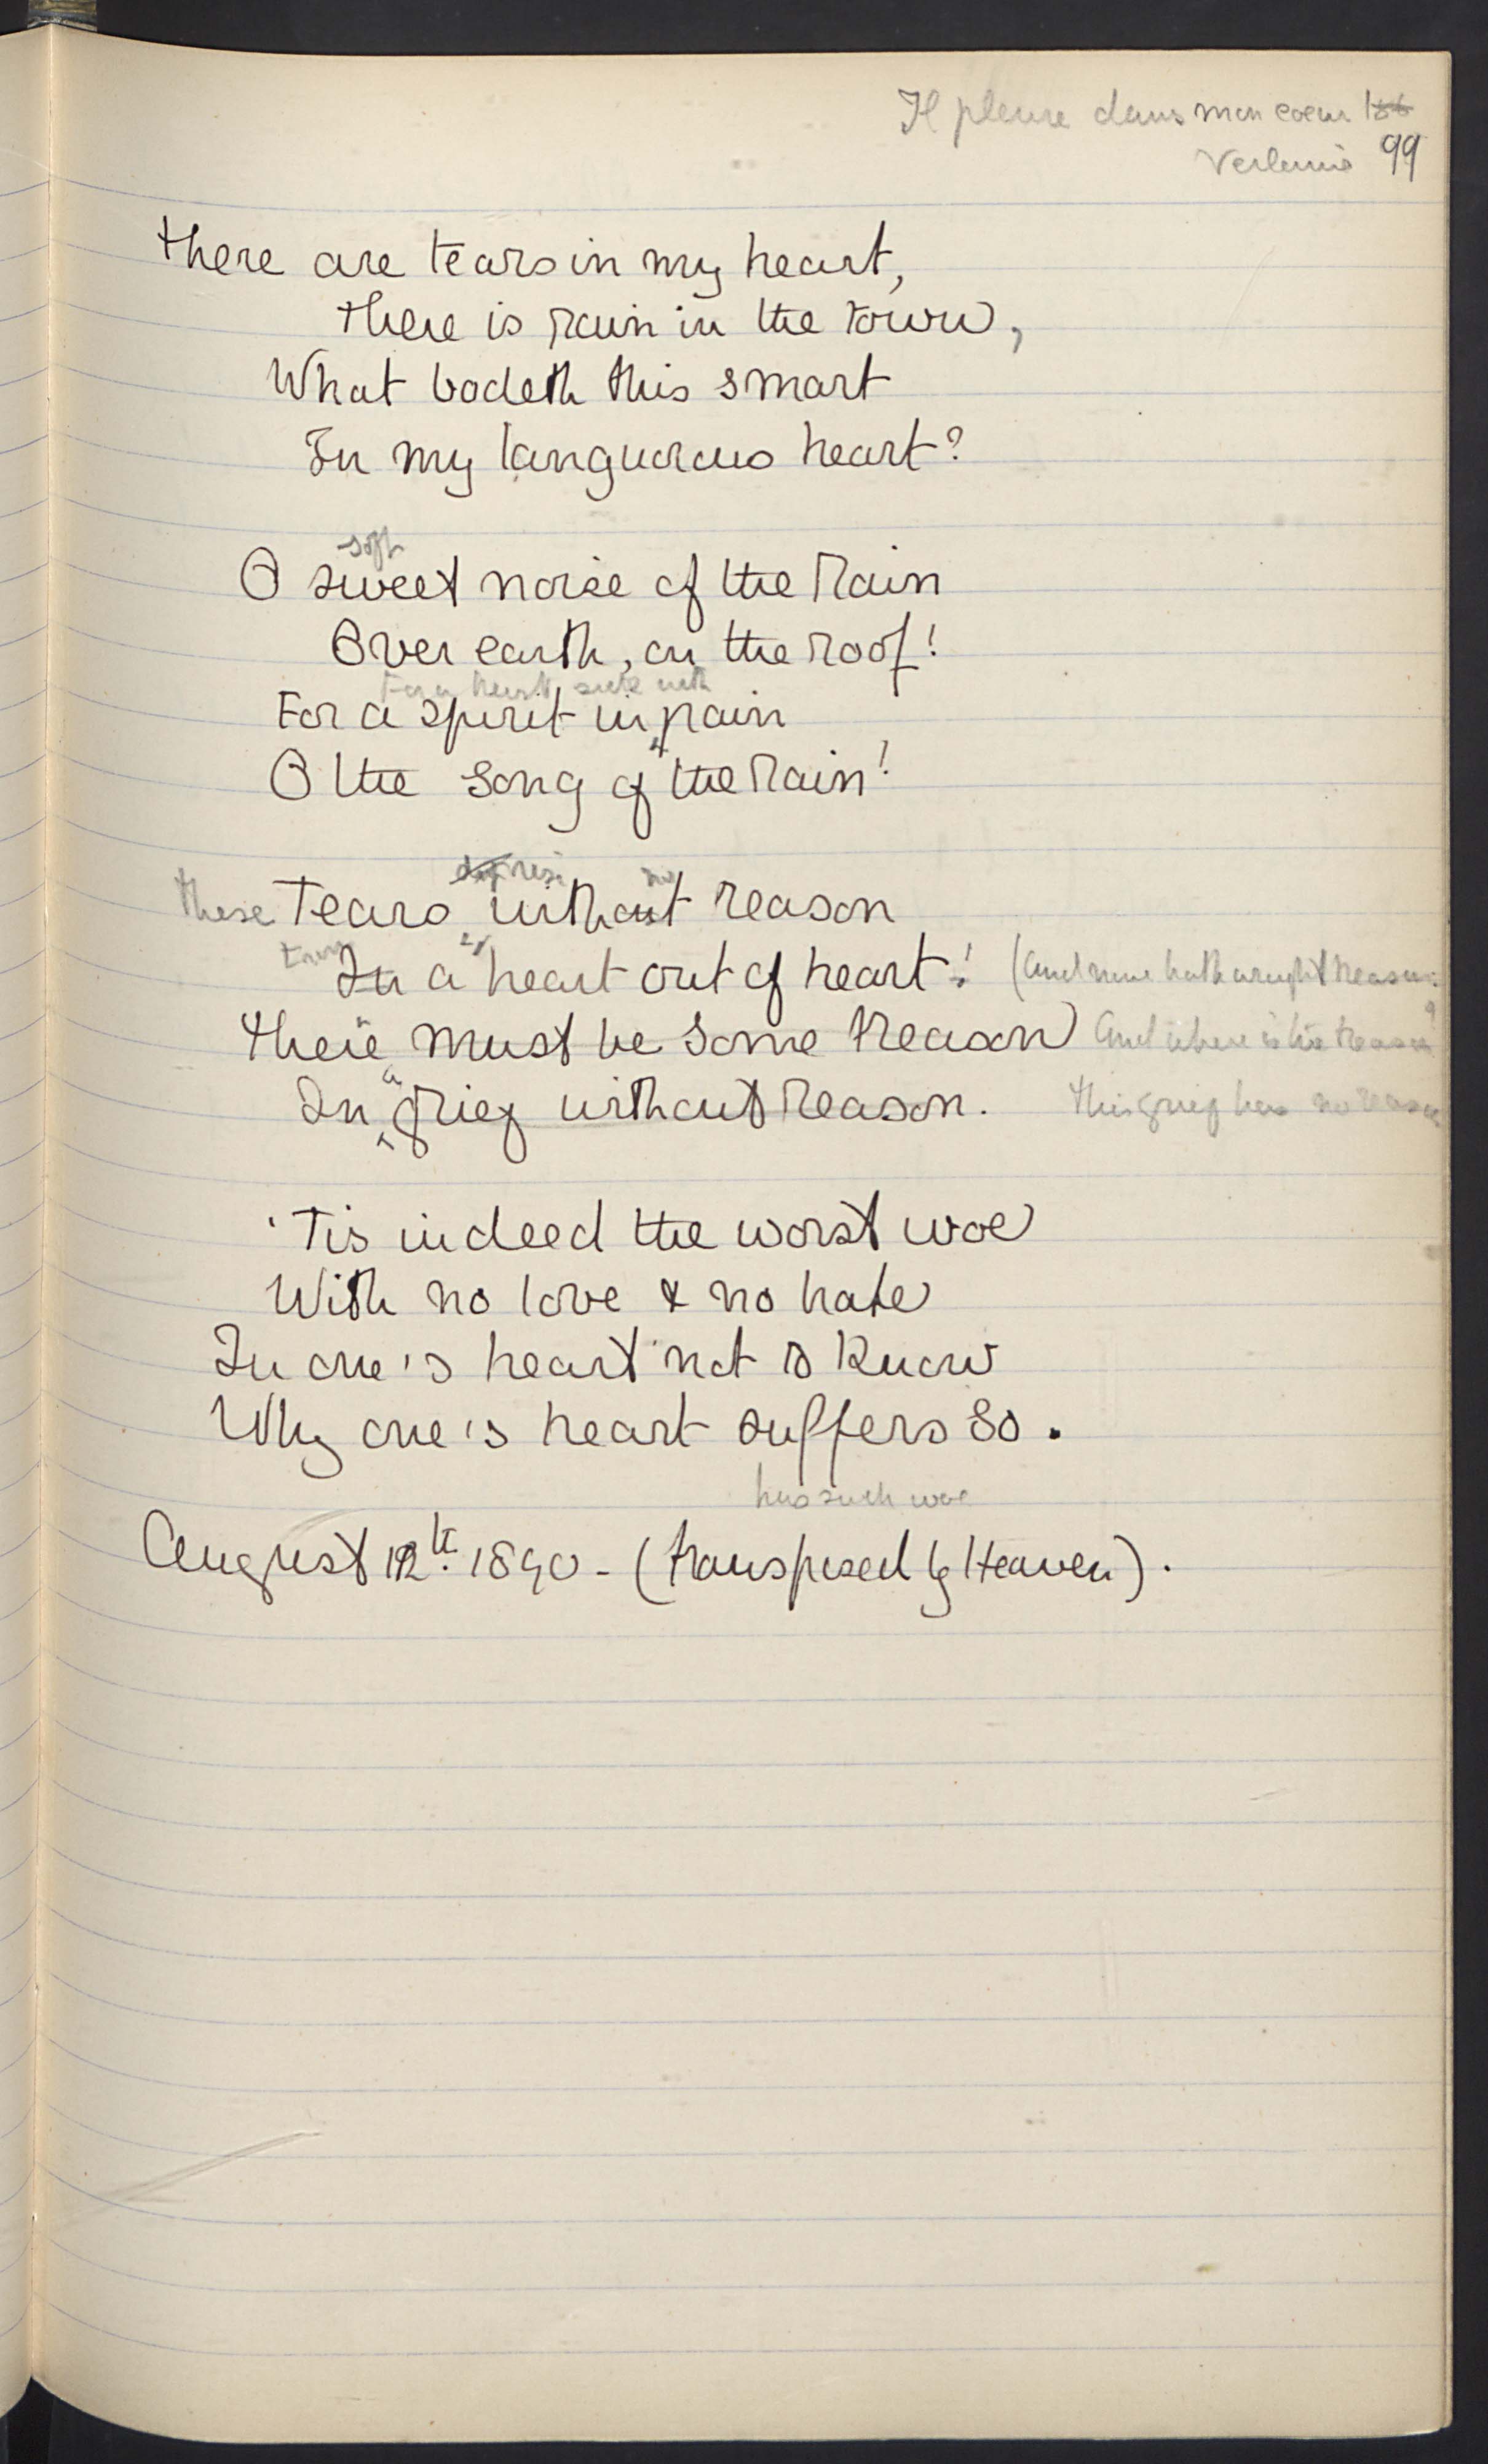 Il pleure dans mon coeur
Verlaine 99
There are tears in my heart,
There is rain in the town,
What bodeth this smart
In my languorous heart?
soft
O sweet noise of the rain
Over earth, on the roof!
For a heart sick with
For a spirit in pain
O the song of the rain!
rise no
these Tears without reason
from
In a heart out of heart!
(And none hath wrought treason?
There must be some treason
And where is the treason
In a grief without reason.
this grief has no reason
'Tis indeed the worst woe
With no love & no hate
In one's heart not to know
Why one's heart suffers so.
has such woe
August 12th. 1890 - (transposed by Heaven).